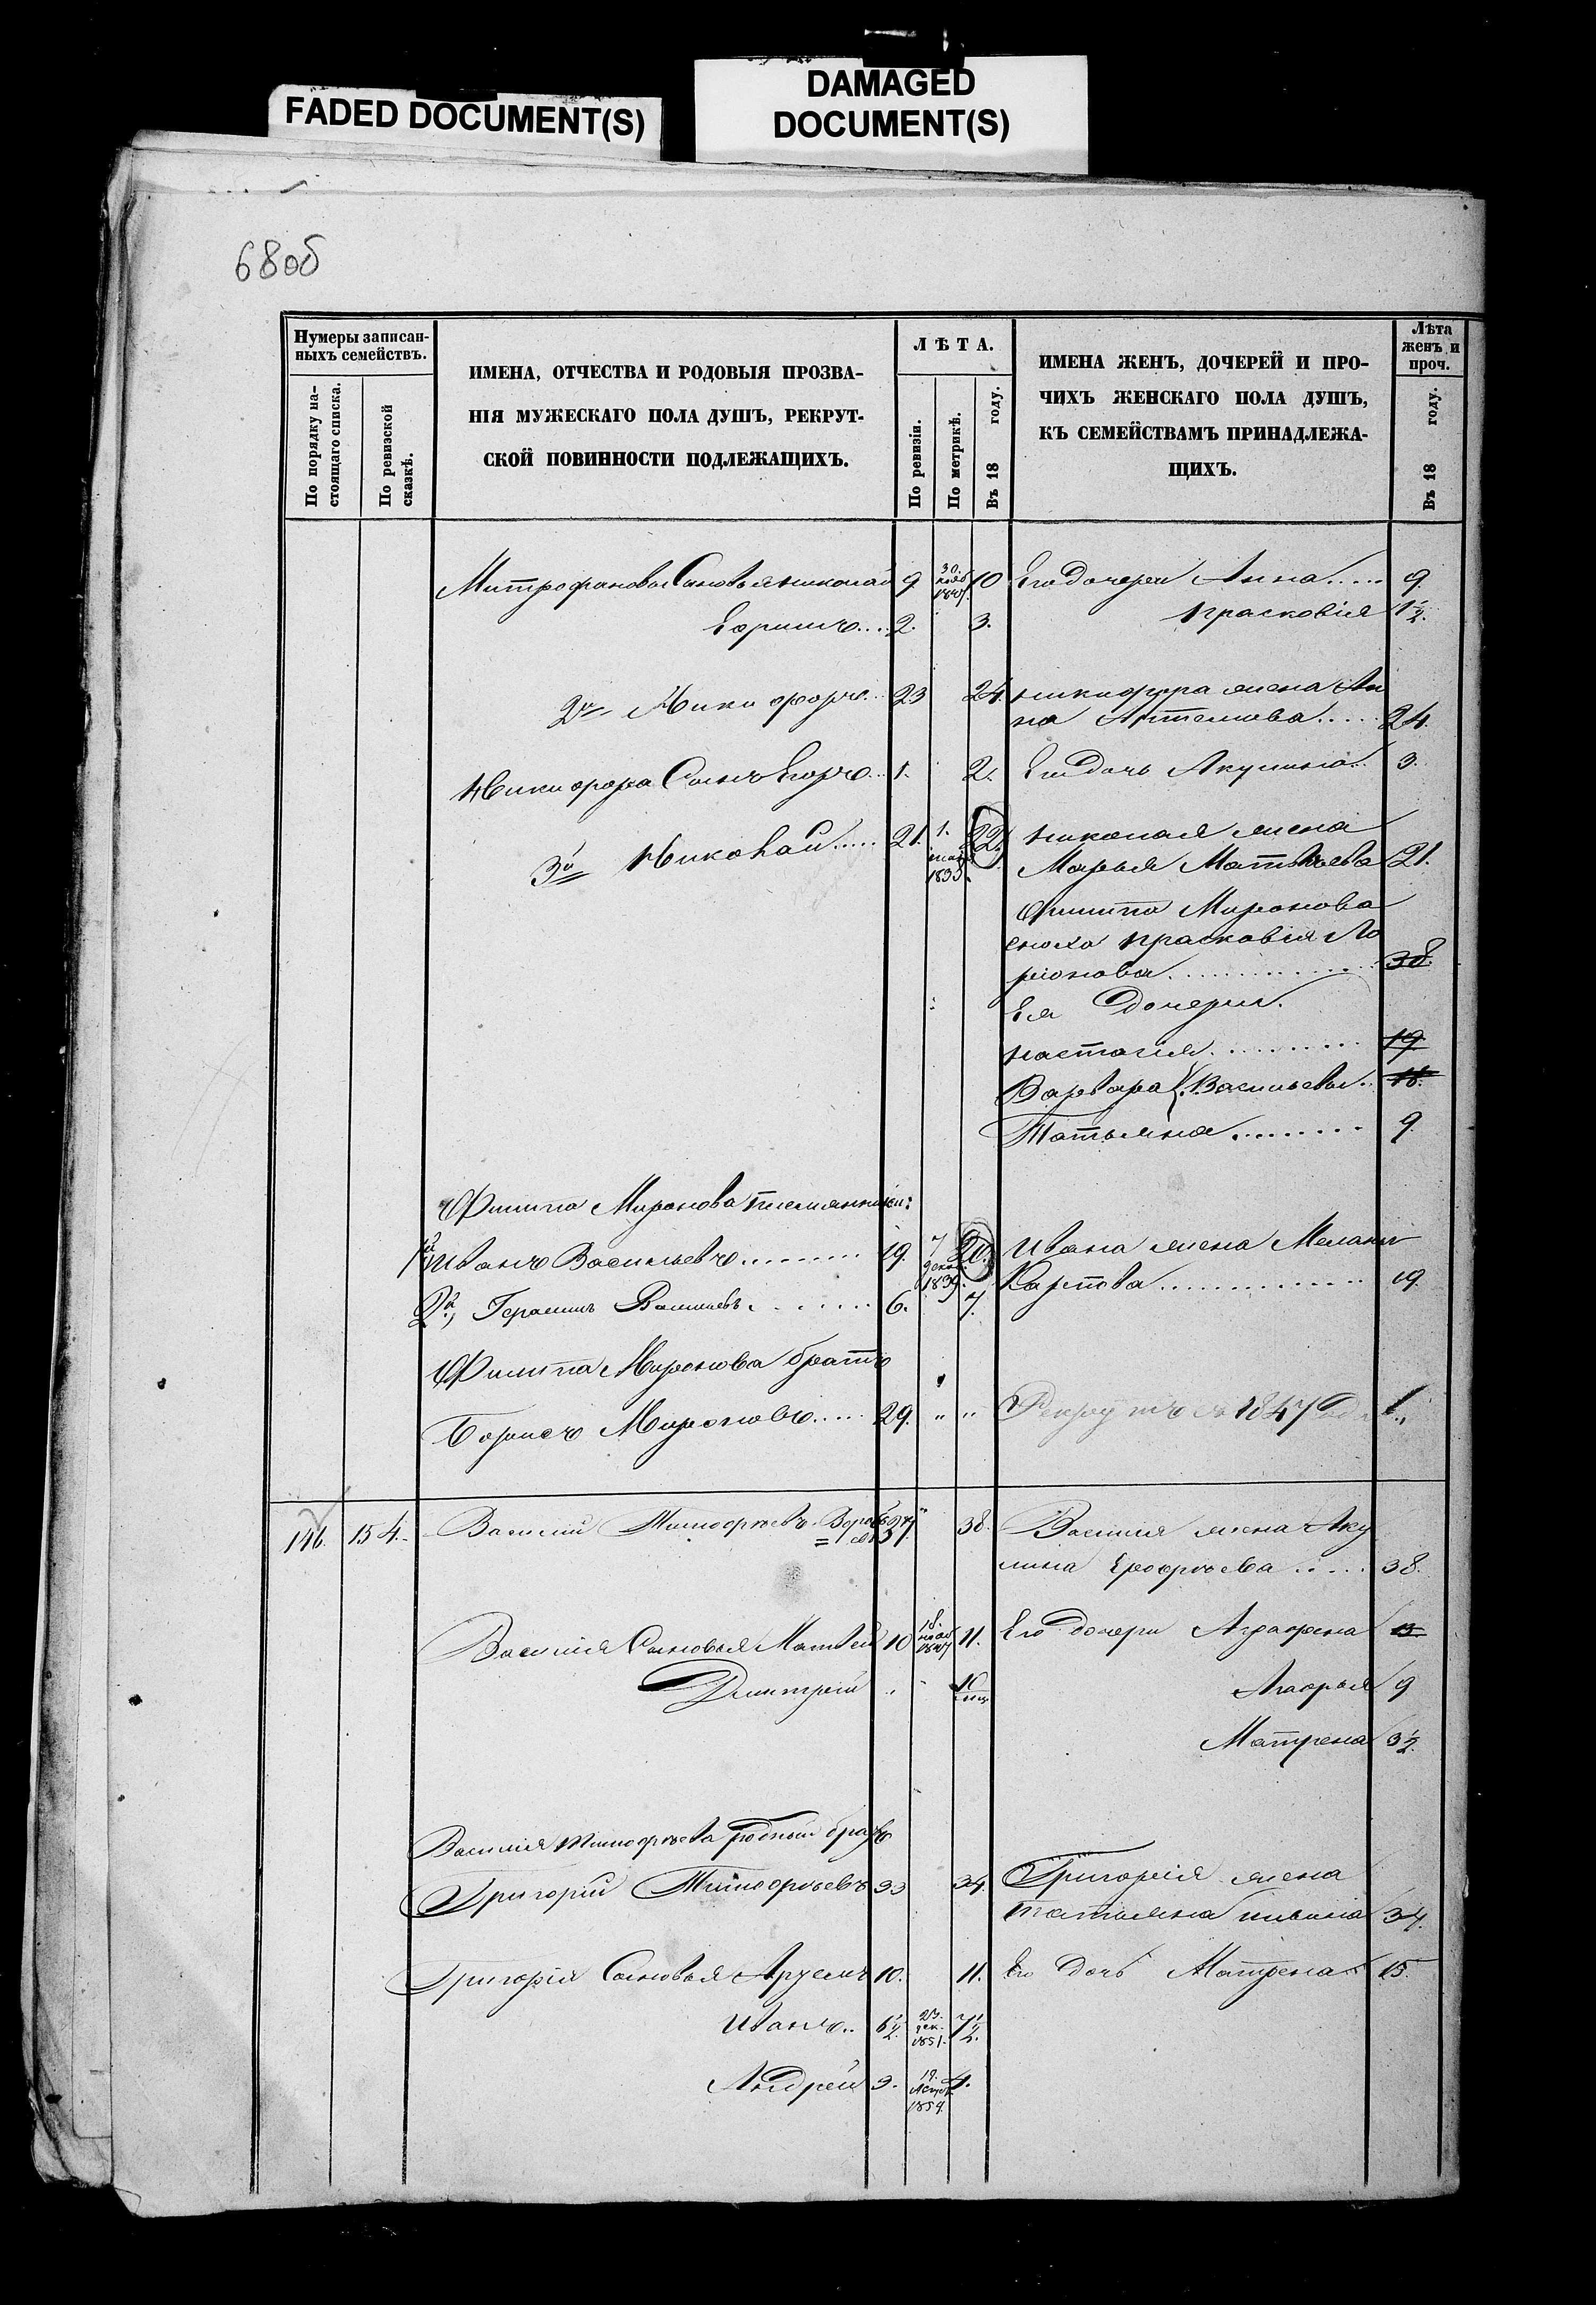 FADED DOCUMENT(S)
DAMAGED
DOCUMENT(S)
68об
Нумеры записан-
ныхъ семействъ.
По порядку на-
стоящаго списка.
По ревизской
сказкѣ.
ИМЕНА, ОТЧЕСТВА И РОДОВЫЯ ПРОЗВА-
НІЯ МУЖЕСКАГО ПОЛА ДУШЪ, РЕКРУТ-
СКОЙ ПОВИННОСТИ ПОДЛЕЖАЩИХЪ.
ЛѢТА.
По ревизіи.
По метрикѣ.
Въ 18 году.
ИМЕНА ЖЕНЪ, ДОЧЕРЕЙ И ПРО-
ЧИХЪ ЖЕНСКАГО ПОЛА ДУШЪ,
КЪ СЕМЕЙСТВАМЪ ПРИНАДЛЕЖА-
ЩИХЪ.
Лѣта
женъ и
проч.
Въ 18 году.
Митрофановы Сыновья Николай 9. 30. нояб 10 Его дочери Анна..... 9.
2. 3. Прасковія 1½.
2й Никифоръ.. 23 24. Никифора жена Ан
на Артемова..... 24.
Никифора Сынъ Егоръ.. 1. 2. Его дочь Акулина.. 3.
3й Николай..... 21. 1. 22. Николая жена
Марья Матвѣева 21.
Филипа Миронова
сноха Прасковія Ло
ріонова............ 38.
Ея Дочери.
Настасія.......... 19.
Варвара Васильевы.. 18.
Татьяна......... 9.
Филипа Миронова племянники:
1й Иванъ Васильевъ......... 19. 7 дека. 1839. 20. Ивана жена Меланья
Карпова............ 19.
2й, Герасимъ Васильевъ........ 6. 7.
Филипа Миронова братъ
Борисъ Мироновъ..... 29. " " Рекрутъ съ 1847 года
146. 154. Василій Тимофѣевъ 37. 38. Василія жена Аку
лина Ерофѣева..... 38.
Василія Сыновья Матвей 10 18. нояб 1847 11. Его дочери Аграфена 13
Дмитрій " 10 Агафья 9
Матрена 3½.
Василія Тимофѣева родный братъ
Григорій Тимофѣевъ 33 34. Григорія жена
Татьяна Ильина 34.
Григорія Сыновья 10. 11. Его дочь Матрена. 15.
Иванъ.. 6½. 23. дек. 1851. 7½.
Андрей 3. 4.